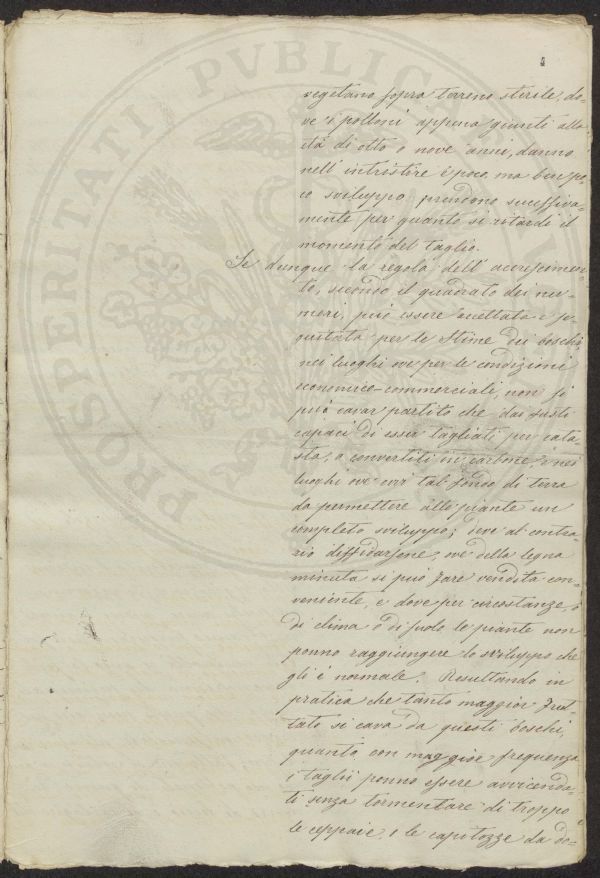 PROSPERITATI PVBLIC
vegetano sopra terreno sterile, do-
ve i polloni appena giunti alla
età di otto o nove anni, danno
nell' intristire e poco, ma ben po-
co sviluppo prendono successiva-
mente per quanto si ritardi il
momento del taglio.
Se dunque la regola dell' accrescimen-
to, secondo il quadrato dei nu-
meri, può essere accettata e se-
guitata per le Stime dei boschi
nei luoghi ove per le condizioni
economico-commerciali, non si
può cavar partito che dai fusti
capaci di esser tagliati per cata-
sta, o convertiti in carbone, e nei
luoghi ove evvi tal fondo di terra
da permettere alle piante un
completo sviluppo; deve al contra-
rio diffidarsene, ove della legna
minuta si può fare vendita con-
veniente, e dove per circostanze, o
di clima o di suolo le piante non
ponno raggiungere lo sviluppo che
gli è normale. Resultando in
pratica che tanto maggior frut-
tato si cava da questi boschi,
quanto con maggior frequenza
i tagli ponno essere avvicenda-
ti senza tormentare di troppo
le ceppaie, e le capitozze da do-